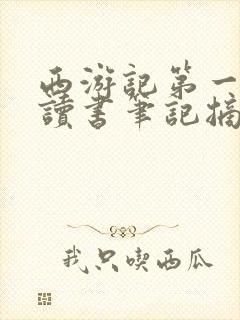 西游記第一
讀書筆記摘
我只喫西瓜